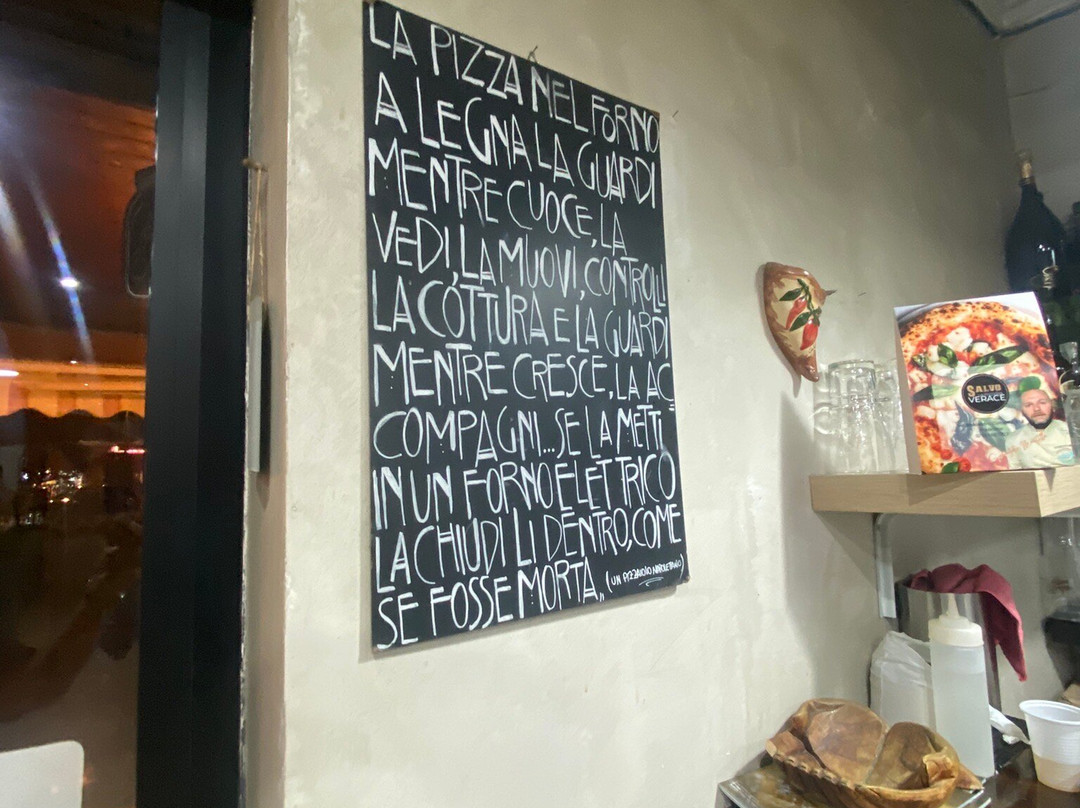 LA PIZZA NEL FORNO
A LEGNA LA GUARDI
MENTRE CUOCE, LA
VEDI, LA MUOVI, CONTROLLI
LA COTTURA E LA GUARDI
MENTRE CRESCE, LA AC
COMPAGNI... SE LA METTI
IN UN FORNO ELETTRICO
LA CHIUDI LI DENTRO, COME
SE FOSSE MORTA,, (UN PIZZAIOLO NAPOLETANO)
SALVO
VERACE